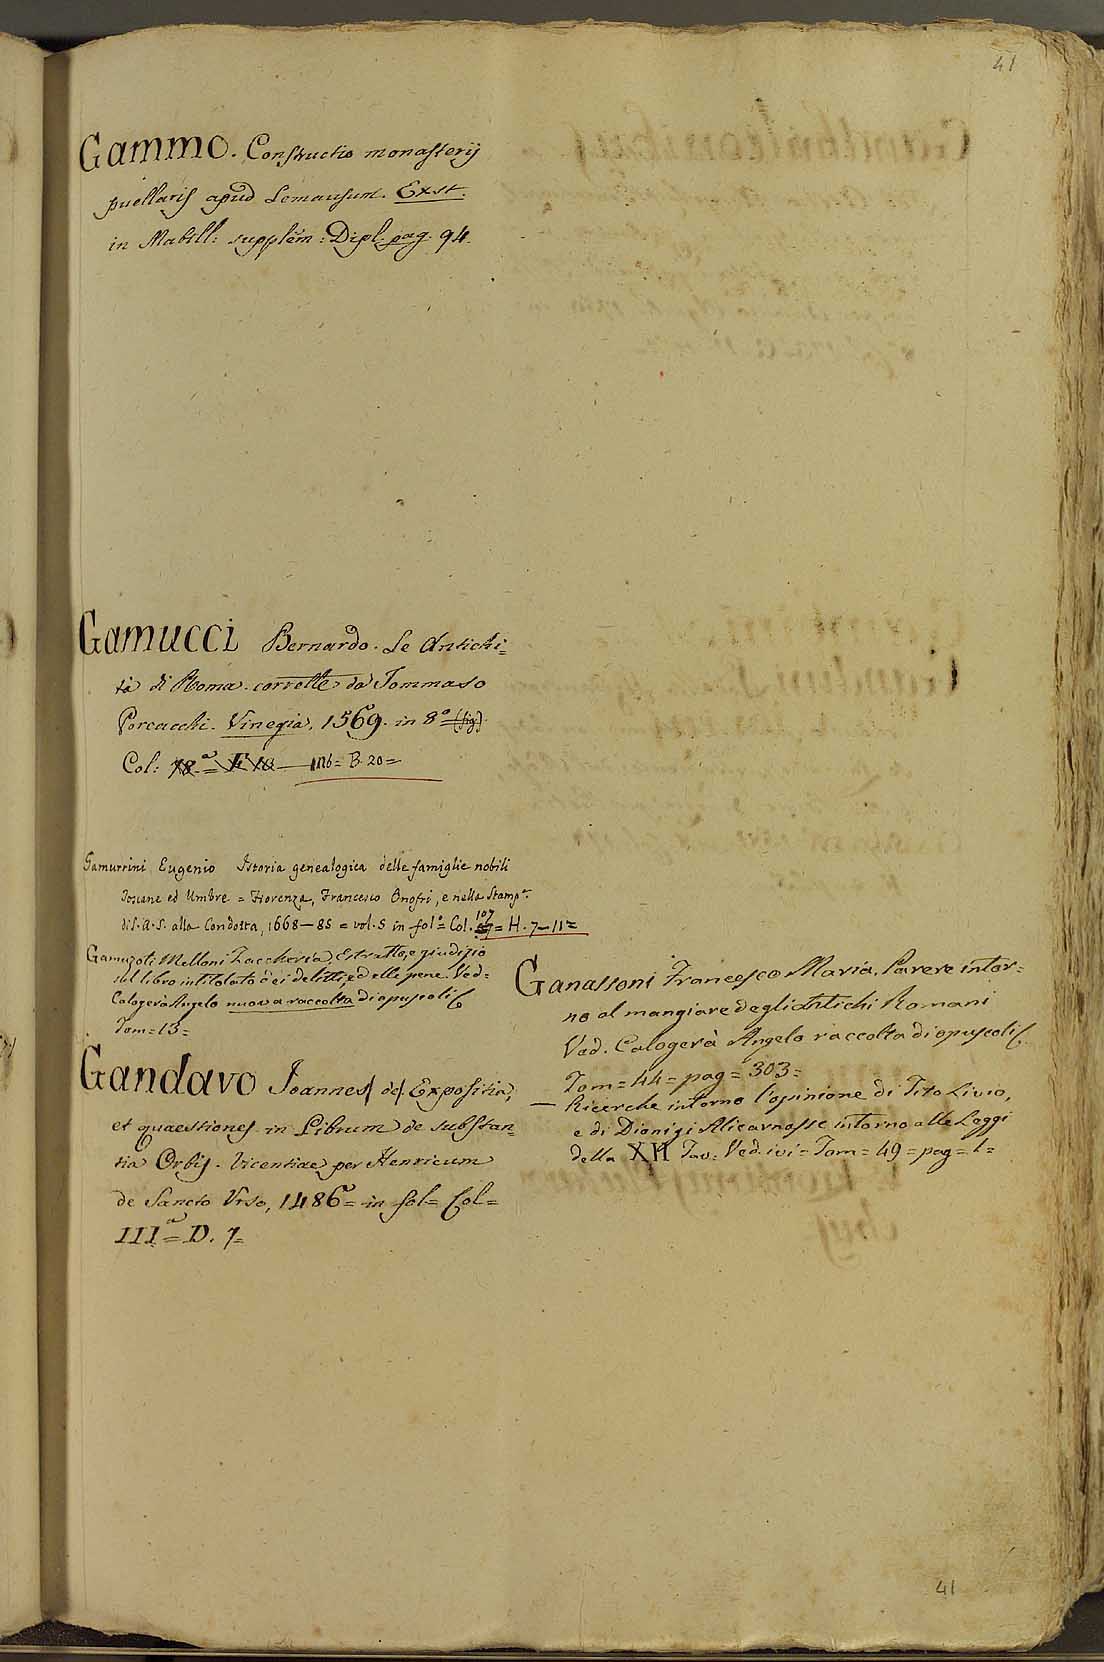 41
Gammo. Constructio monasterij
puellaris apud Lemausum. Exst.
in Mabill: supplem: Dipl. pag. 94.
Gamucci Bernardo. Le Antichi=
tà di Roma corrette da Tommaso
Porcacchi. Vinegia, 1569. in 8° (fig)
Col: 78.ª = F. 18 — 116 = B. 20 =
Gamurrini Eugenio Istoria genealogica delle famiglie nobili
Toscane ed Umbre = Fiorenza, Francesco Onofri, e nella Stampª
di S. A. S. alla Condotta, 1668—85 = vol. 5 in fol° Col. 107 = H. 7—11 =
Gamuzoti Melloni Zaccheria, Estratto, e giudizio
sul libro intitolato dei delitti, ed elle pene. Ved=
Calogerà Angelo nuova raccolta di opuscoli &
Tom = 13 =
Gandavo Joannes de. Expositio,
et quaestiones in Librum de substan=
tia Orbis. Vicentiae per Henricum
de Sancto Vrso, 1486 = in fol = Col =
IIIª = D. 7 =
Ganassoni Francesco Maria. Parere intor=
no al mangiare degli Antichi Romani
Ved. Calogerà Angelo raccolta di opuscoli &
Tom = 44 = pag = 303 =
— Ricerche intorno l'opinione di Tito Livio,
e di Dionigi Alicarnasse intorno alle Leggi
della XII Tav: Ved. ivi = Tom = 49 = pag = 1 =
41